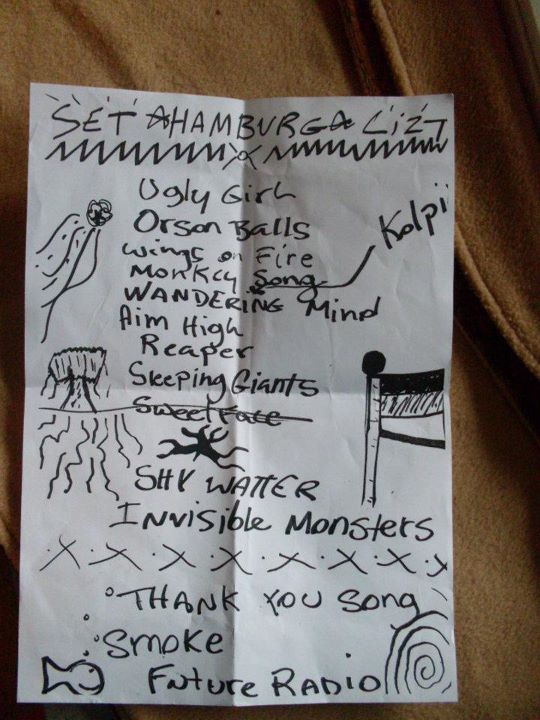 SET HAMBURG LIZT
Ugly Girl
Orson Balls
Wings on Fire
Monkey Song
Kolpi
WANDERING Mind
Aim High
Reaper
Sleeping Giants
Sweet Face
SHY WATTER
Invisible Monsters
THANK YOU Song
Smoke
Future RADIO